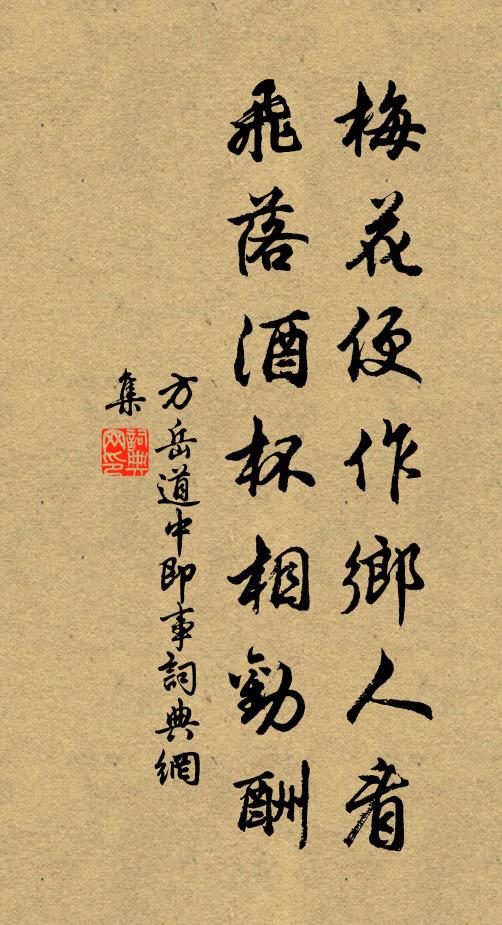 梅花便作鄉人看
飛落酒杯相勸酬
方岳道中即事詞典網
集
詞典
网印